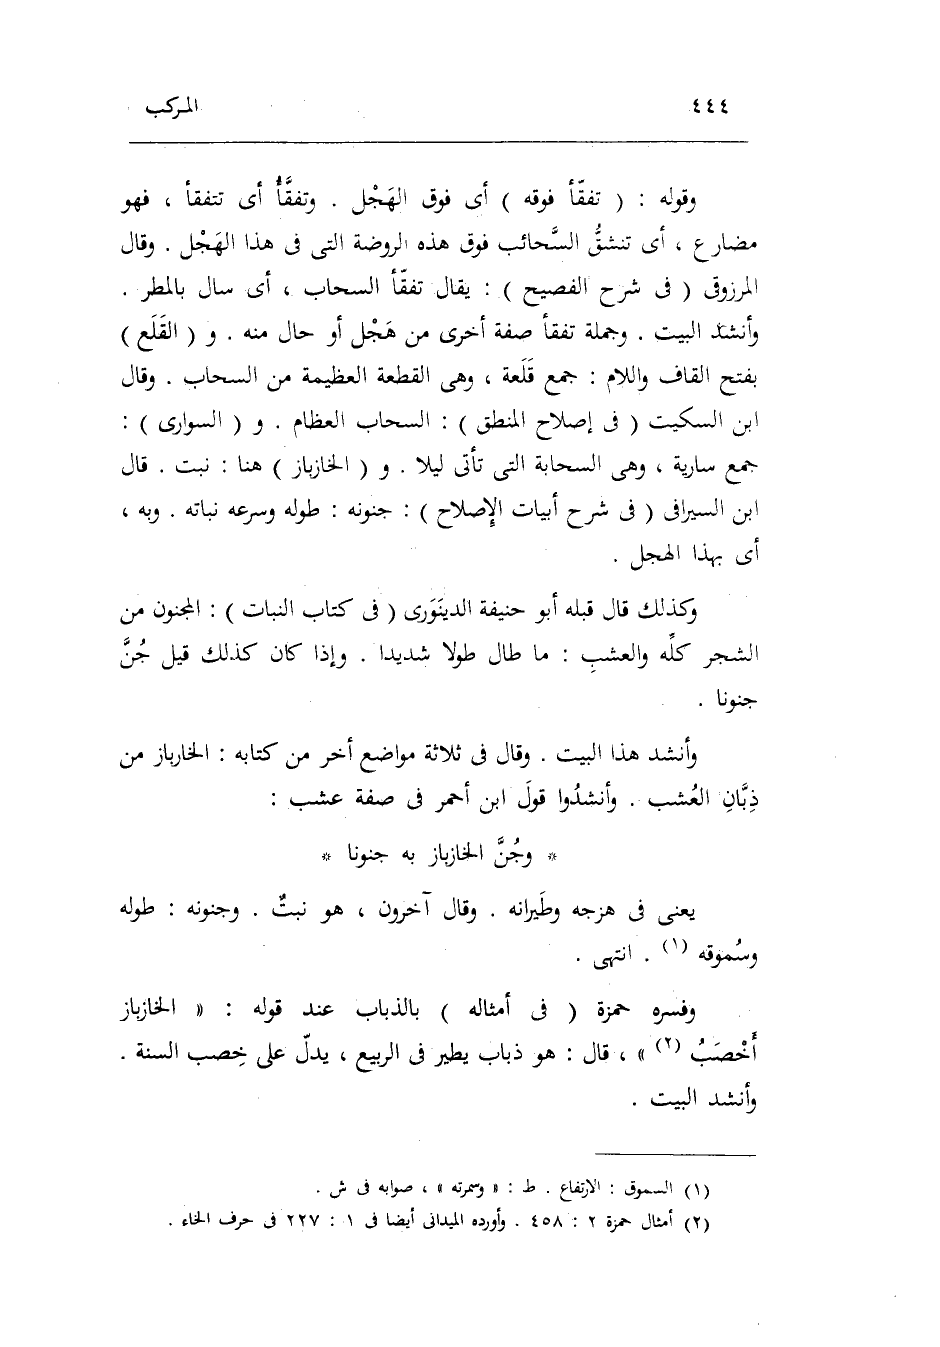 ٤٤٤ المركب
وقوله : ( تفقّأ فوقه ) أى فوق الهَجْل . وتفقَّأُ أى تتفقأ ، فهو
مضارع ، أى تنشقُّ السَّحائب فوق هذه الروضة التى فى هذا الهَجْل . وقال
المرزوقى ( فى شرح الفصيح ) : يقال تفقّأ السحاب ، أى سال بالمطر .
وأنشد البيت . وجملة تفقأ صفة أخرى من هَجْل أو حال منه . و ( القَلَع )
بفتح القاف واللام : جمع قَلَعة ، وهى القطعة العظيمة من السحاب . وقال
ابن السكيت ( فى إصلاح المنطق ) : السحاب العظام . و ( السوارى ) :
جمع سارية ، وهى السحابة التى تأتى ليلا . و ( الخازباز ) هنا : نبت . قال
ابن السيرافى ( فى شرح أبيات الإصلاح ) : جنونه : طوله وسرعه نباته . وبه ،
أى بهذا الهجل .
وكذلك قال قبله أبو حنيفة الدينَوَرى ( فى كتاب النبات ) : المجنون من
الشجر كلِّه والعشبِ : ما طال طولا شديدا . وإذا كان كذلك قيل جُنَّ
جنونا .
وأنشد هذا البيت . وقال فى ثلاثة مواضع أخر من كتابه : الخازباز من
ذِبَّانِ العُشب . وأنشدُوا قولَ ابن أحمر فى صفة عشب :
* وجُنَّ الخازباز به جنونا *
يعنى فى هزجه وطَيرانه . وقال آخرون ، هو نبتٌ . وجنونه : طوله
وسُموقه (١) . انتهى .
وفسره حمزة ( فى أمثاله ) بالذباب عند قوله : « الخازباز
أَخْصَبُ (٢) » ، قال : هو ذباب يطير فى الربيع ، يدلّ على خِصب السنة .
وأنشد البيت .
(١) السموق : الارتفاع . ط : « وسمرته » ، صوابه فى ش .
(٢) أمثال حمزة ٢ : ٤٥٨ . وأورده الميدانى أيضا فى ١ : ٢٢٧ فى حرف الخاء .